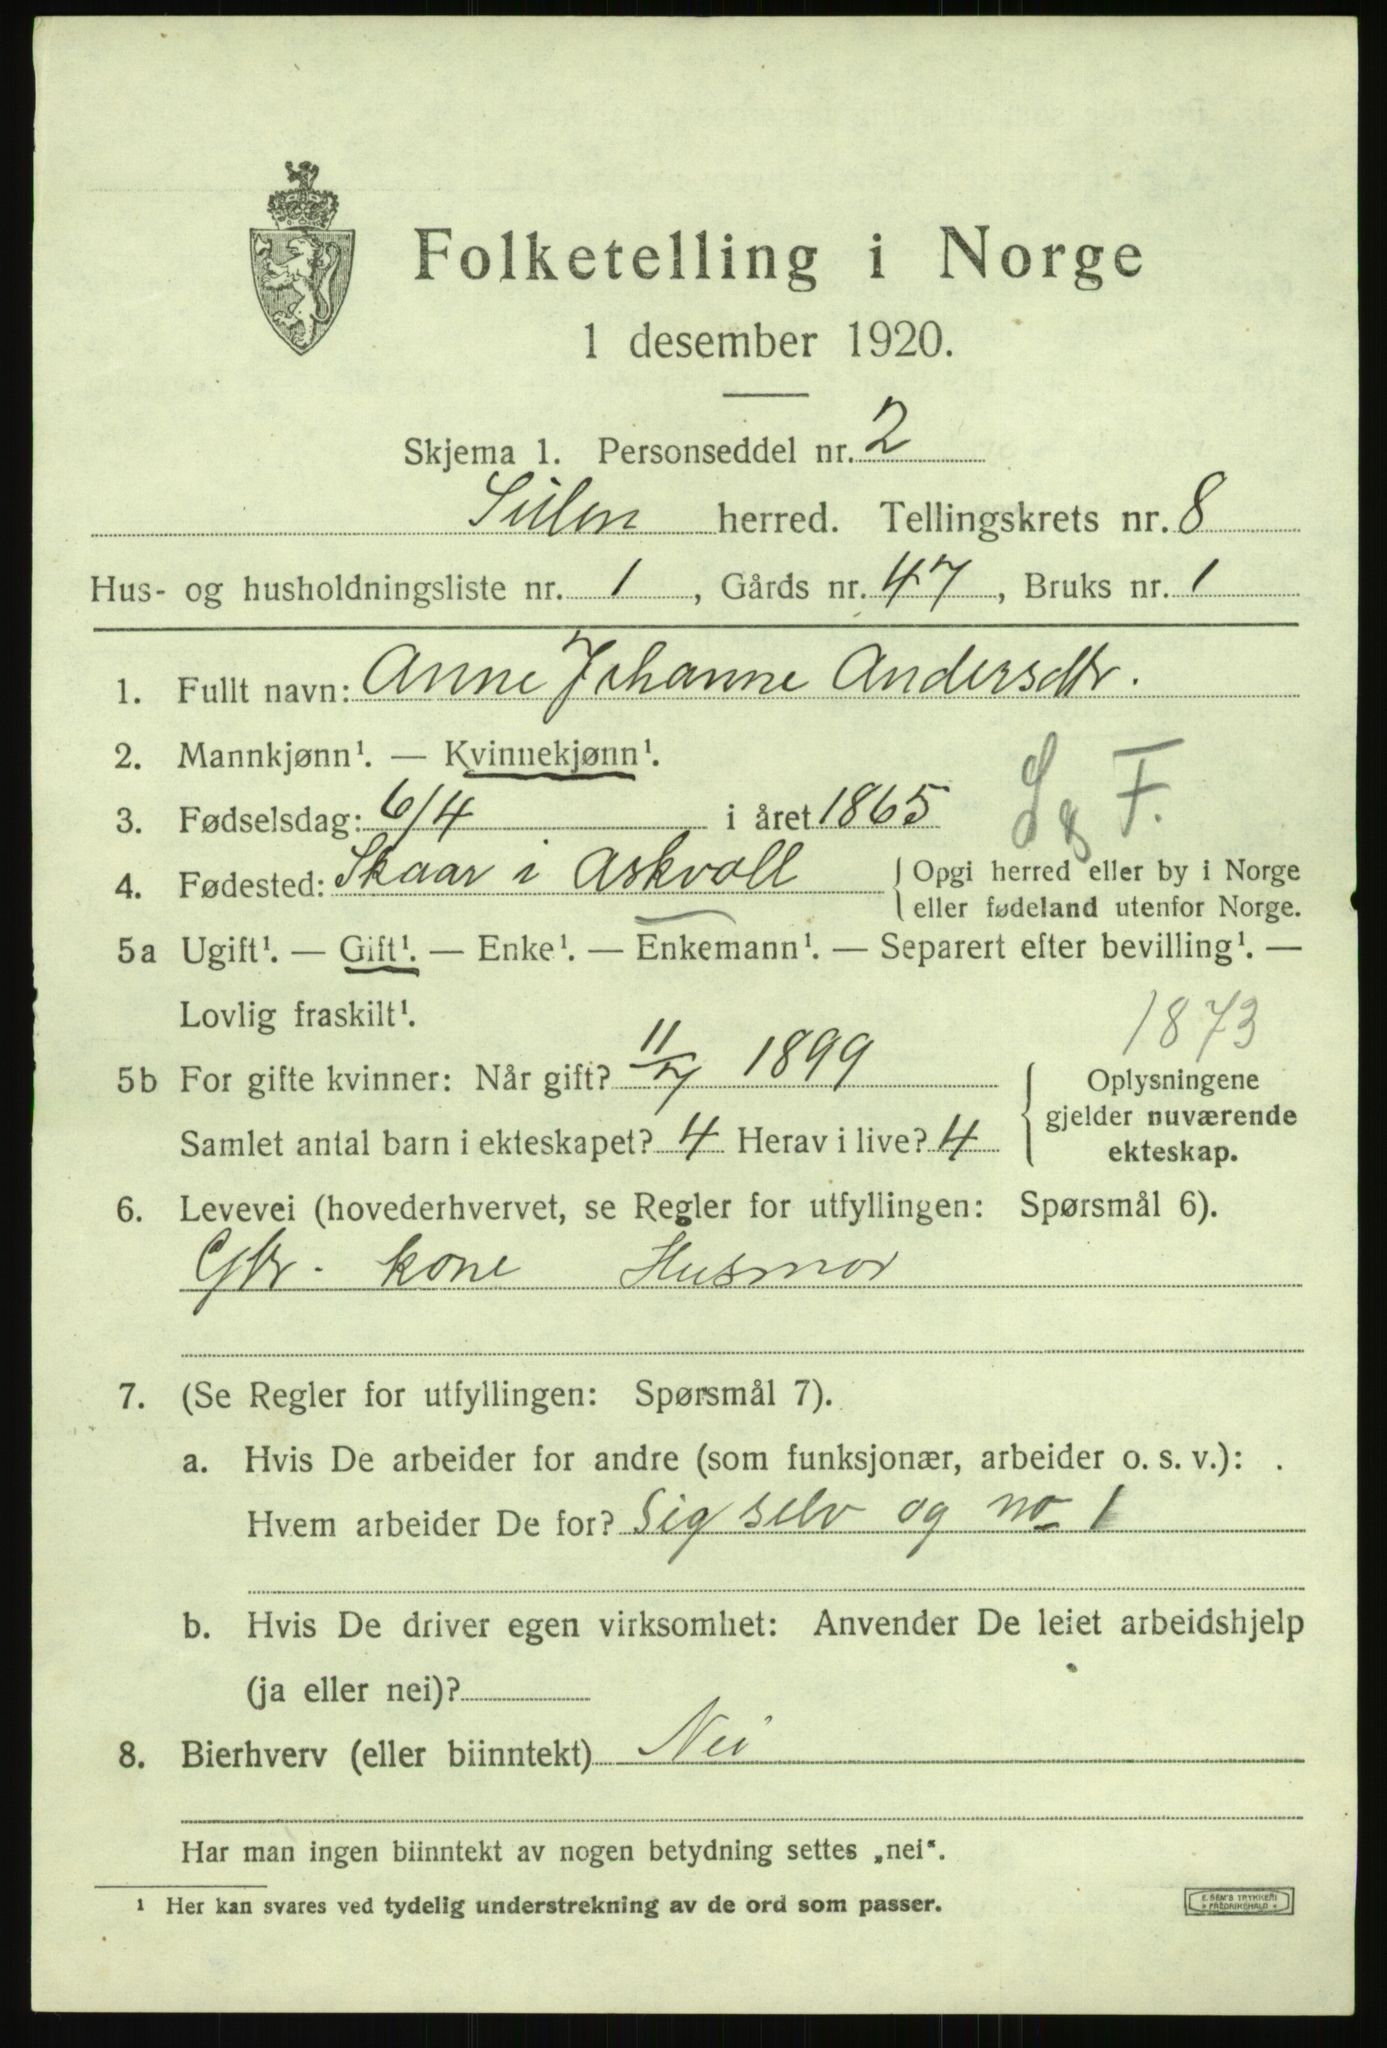 Folketelling i Norge
1 desember 1920.
Skjema 1. Personseddel nr. 2
Sulen herred. Tellingskrets nr. 8
Hus- og husholdningsliste nr. 1, Gårds nr. 47, Bruks nr. 1
1. Fullt navn: Anne Johanne Andersdtr.
2. Mannkjønn¹. — Kvinnekjønn¹.
3. Fødselsdag: 6/4 i året 1865
F.
4. Fødested: Skaar i Askvoll
Opgi herred eller by i Norge
eller fødeland utenfor Norge.
5a Ugift¹. — Gift¹. — Enke¹. — Enkemann¹. — Separert efter bevilling¹. —
Lovlig fraskilt¹.
1873
5b For gifte kvinner: Når gift? 11/7 1899
Samlet antal barn i ekteskapet? 4 Herav i live? 4
Oplysningene
gjelder nuværende
ekteskap.
6. Levevei (hovederhvervet, se Regler for utfyllingen: Spørsmål 6).
Gbr. kone Husmor
7. (Se Regler for utfyllingen: Spørsmål 7).
a. Hvis De arbeider for andre (som funksjonær, arbeider o. s. v.):
Hvem arbeider De for? Sig selv og no 1
b. Hvis De driver egen virksomhet: Anvender De leiet arbeidshjelp
(ja eller nei)?
8. Bierhverv (eller biinntekt) Nei
Har man ingen biinntekt av nogen betydning settes „nei“.
¹ Her kan svares ved tydelig understrekning av de ord som passer.
E. SEM'S TRYKKERI
FREDRIKSHALD